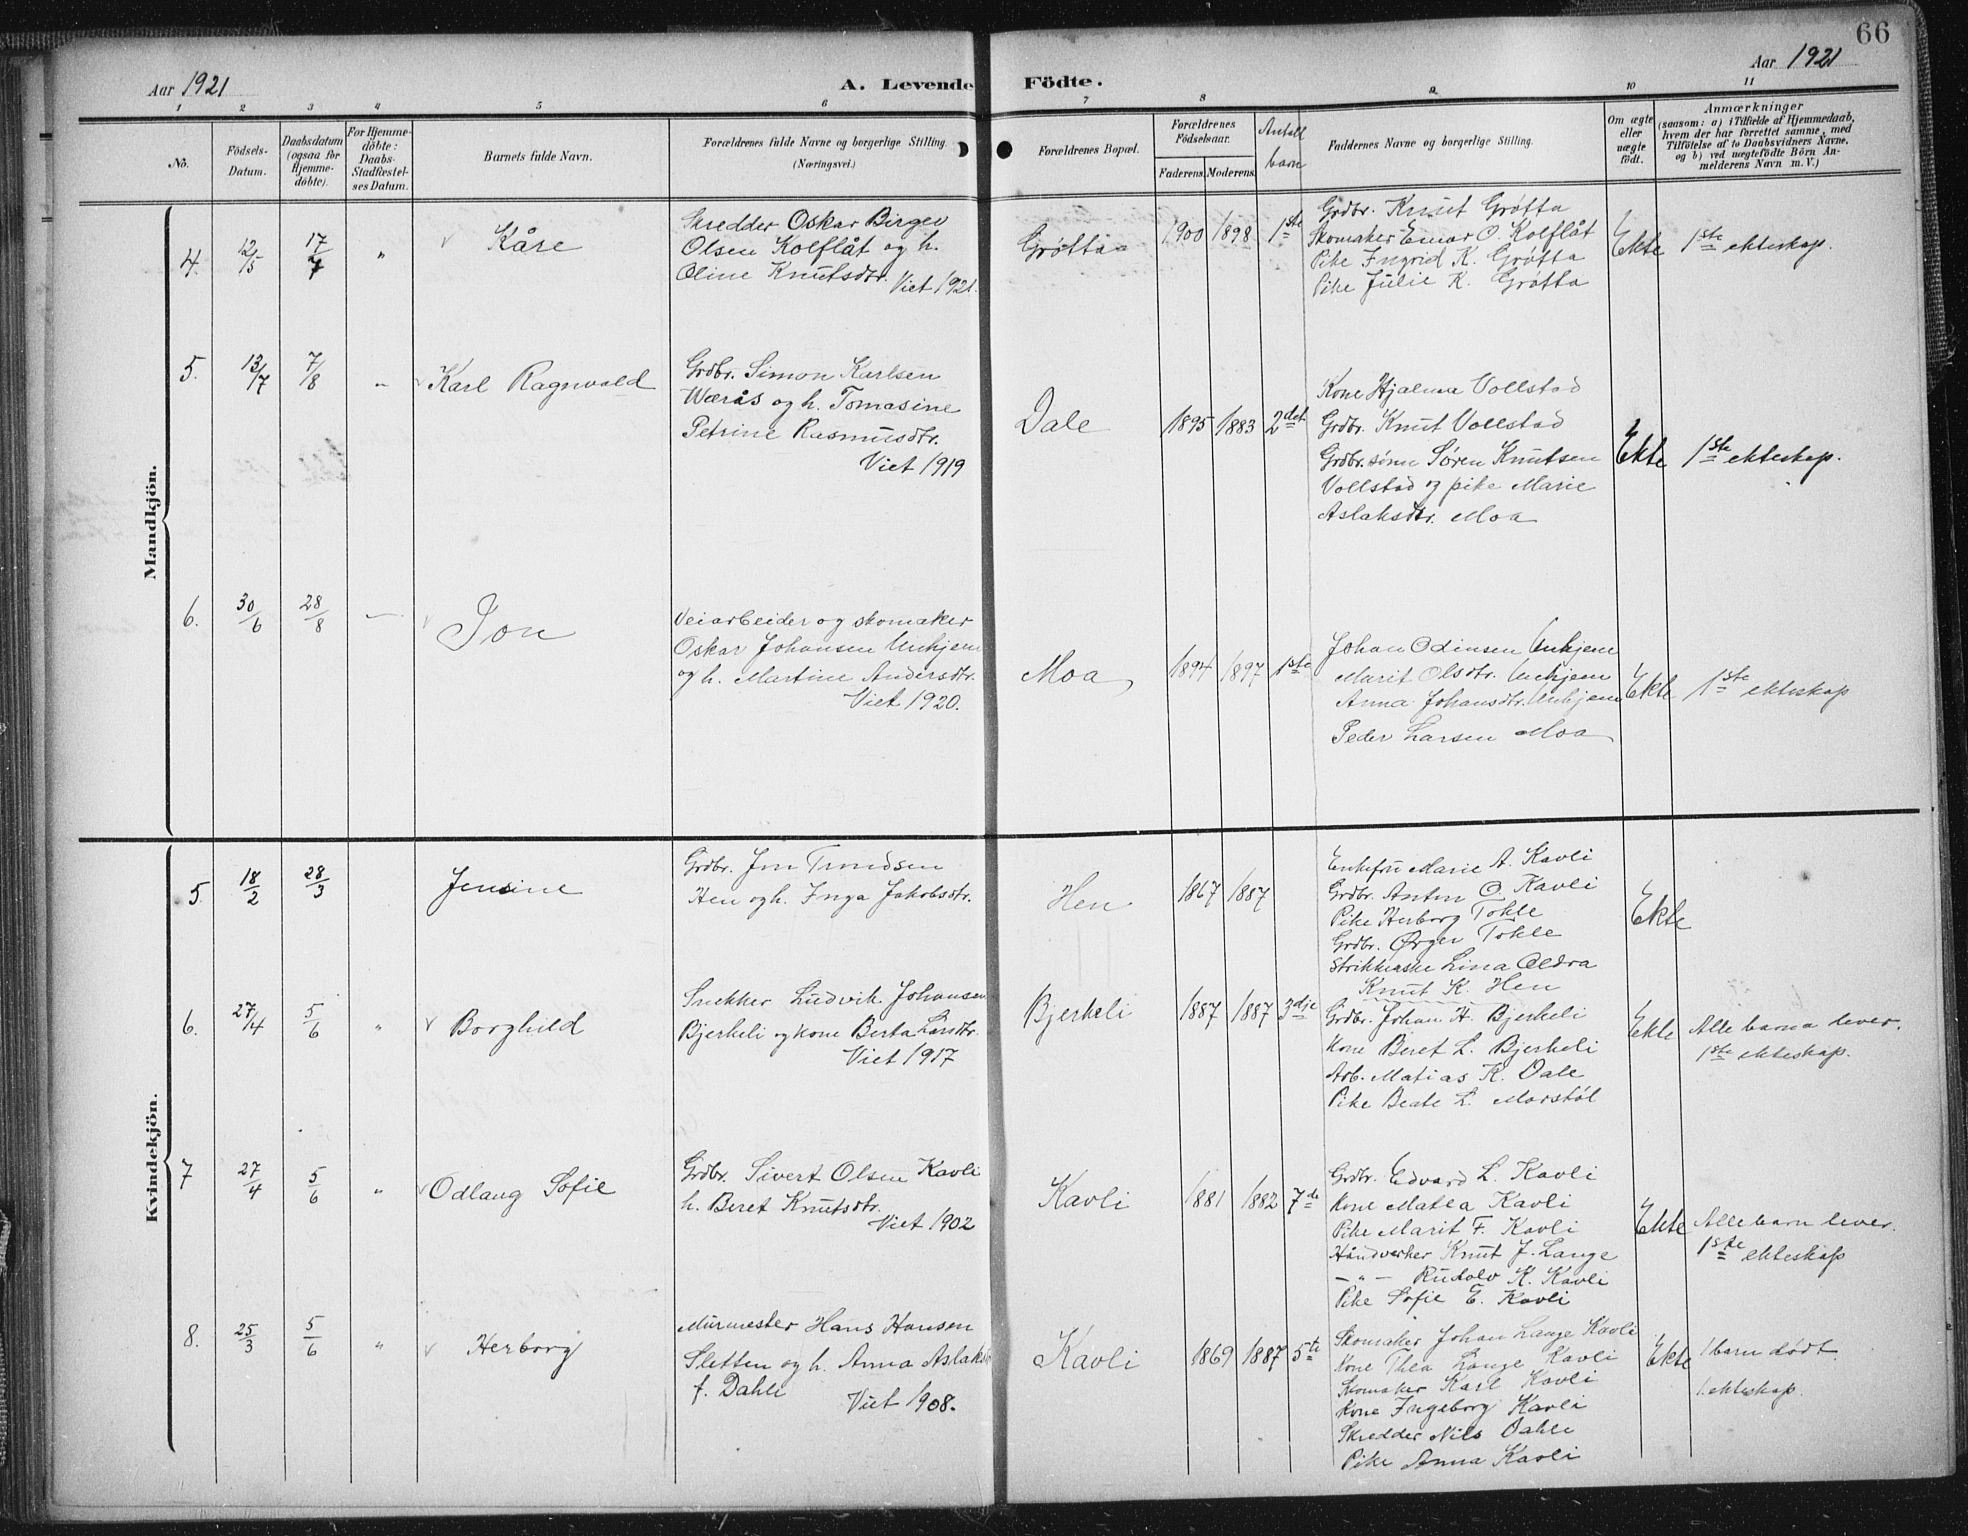 66
Aar 1921
A. Levende Födte.
Aar 1921
1 2 3 4 5 6 7 8 9 10 11
No.
Födsels-Datum.
Daabsdatum (ogsaa for Hjemme-döbte).
For Hjemme-döbte: Daabs-Stadfæstel-ses Datum.
Barnets fulde Navn.
Forældrenes fulde Navne og borgerlige Stilling.
(Næringsvei.)
Forældrenes Bopæl.
Forældrenes Födselsaar.
Faderens. Moderens.
Antall barn
Faddernes Navne og borgerlige Stilling.
Om ægte eller uægte födt.
Anmærkninger
(saasom: a) i Tilfælde af Hjemmedaab,
hvem der har forrettet samme, med
Tilföielse af to Daabsvidners Navne,
og b) ved uegtefödte Börn An-
melderens Navn m. V.)
Mandkjön.
4. 12/5 17/7 " Kåre
Skredder Oskar Birger
Olsen Kolflåt og h.
Oline Knutsdtr.
Viet 1921.
Grøtta 1900 1898 1ste
Grdbr. Knut Grøtta
Skomaker Einar O. Kolflåt
Pike Ingrid K. Grøtta
Pike Julie K. Grøtta
Ekte 1ste ekteskap.
5. 13/7 7/8 " Karl Ragnvald
Grdbr. Simon Karlsen
Wærås og h. Tomasine
Petrine Rasmusdtr.
Viet 1919
Dale 1895 1883 2det
Kone Hjalma Vollstad
Grdbr. Knut Vollstad
Grdbr.sønn Søren Knutsen
Vollstad og pike Marie
Aslaksdtr. Moa
Ekte 1ste ekteskap.
6. 30/6 28/8 — Jon
Veiarbeider og skomaker
Oskar Johansen Unhjem
og h. Martine Andersdtr.
Viet 1920.
Moa 1894 1897 1ste
Johan Odinsen Unhjem
Marit Olsdtr. Unhjem
Anna Johansdtr. Unhjem
Peder Larsen Moa
Ekte 1ste ekteskap
Kvindekjön.
5. 18/2 28/3 Jensine
Grdbr. Jon Trondsen
Hen og h. Inga Jakobsdtr.
Hen 1867 1887
Enkefru Marie A. Kavli
Grdbr. Anton O. Kavli
Pike Herborg Tokle
Grdbr. Ørger Tokle
Strikkerske Lina Oldra
Knut K. Hen
Ekte
6. 27/4 5/6 " Borghild
Snekker Ludvik Johansen
Bjerkeli og kone Berta Larsdtr.
Viet 1917
Bjerkeli 1887 1887 3dje
Grdbr. Johan H. Bjerkeli
Kone Beret L. Bjerkeli
Arb. Matias K. Dale
Pike Beate L. Marstøl
Ekte Alle barna lever.
1ste ekteskap.
7 27/4 5/6 " Odlaug Sofie
Grdbr. Sivert Olsen Kavli
h. Beret Knutsdtr.
Viet 1902
Kavli 1881 1882 7de
Grdbr. Edvard L. Kavli
Kone Matea Kavli
Pike Marit F. Kavli
Håndverker Knut J. Lange
— " — Rudolv K. Kavli
Pike Sofie E. Kavli
Ekte Alle barn lever.
1ste ekteskap
8. 25/3 5/6 " Herborg
Murmester Hans Hansen
Sletten og h. Anna Aslaksdtr
f. Dahle
Viet 1908.
Kavli 1869 1887 5te
Skomaker Johan Lange Kavli
Kone Thea Lange Kavli
Skomaker Karl Kavli
Kone Ingeborg Kavli
Skredder Nils Dahle
Pike Anna Kavli
Ekte 1 barn dødt
1. ekteskap.